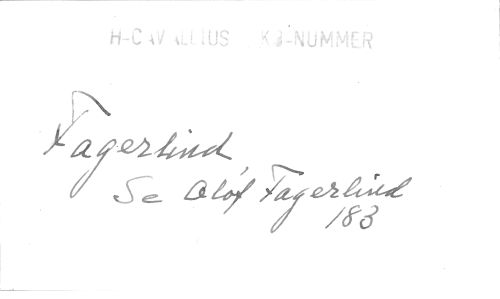 H-CAVALLIUS KB-NUMMER
Fagerlind,
Se Olof Fagerlind
183